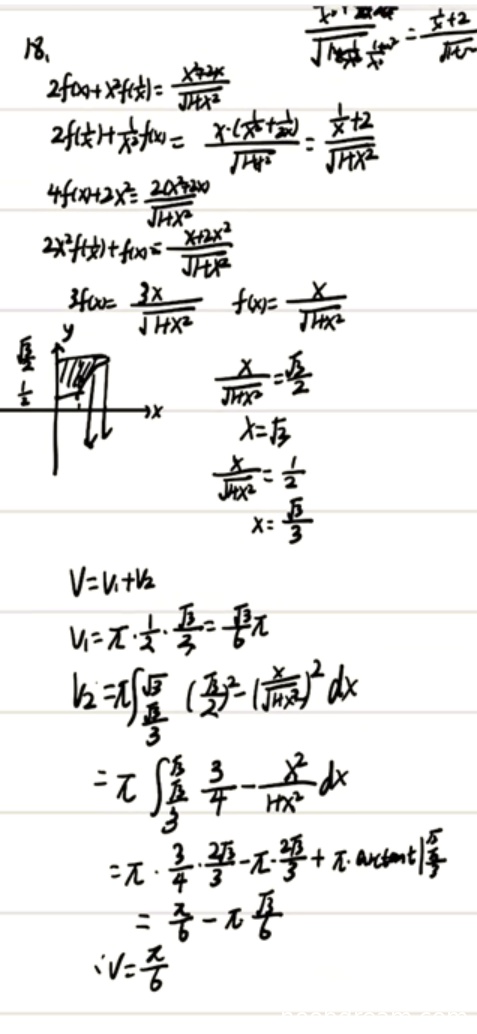 18.
2f(x)+x²f(1/x)=(x²+2x)/√(1+x²)
2f(1/x)+1/x² f(x)=x·(1/x²+1/2x)/√(1+x²)=(1/x+2)/√(1+x²)
4f(x)+2x²=2(x²+2x)/√(1+x²)
2x²f(1/x)+f(x)=(x+2x²)/√(1+x²)
3f(x)=3x/√(1+x²) f(x)=x/√(1+x²)
y
√3/2
1/2
x
x/√(1+x²)=√3/2
x=√3
x/√(1+x²)=1/2
x=√3/3
V=V₁+V₂
V₁=π·1/2·√3/3=√3/6 π
V₂=π∫_{√3/3}^{√3} (√3/2)²-(x/√(1+x²))² dx
=π∫_{√3/3}^{√3} 3/4-x²/(1+x²) dx
=π·3/4·2√3/3-π·2√3/3+π·arctant|_{√3/3}^{√3}
=π/6-π√3/6
∴V=π/6